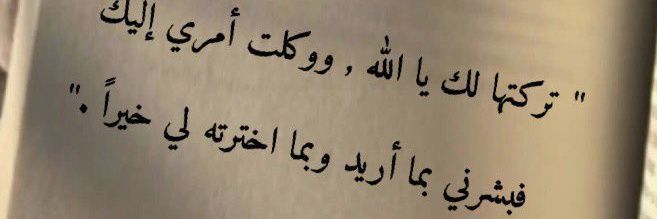 " تركتها لك يا الله , ووكلت أمري إليك
فبشرني بما أريد وبما اخترته لي خيراً . "